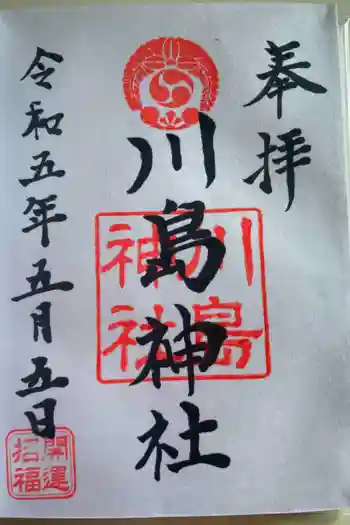 奉拝
川島神社
川島神社
令和五年五月五日
開運招福